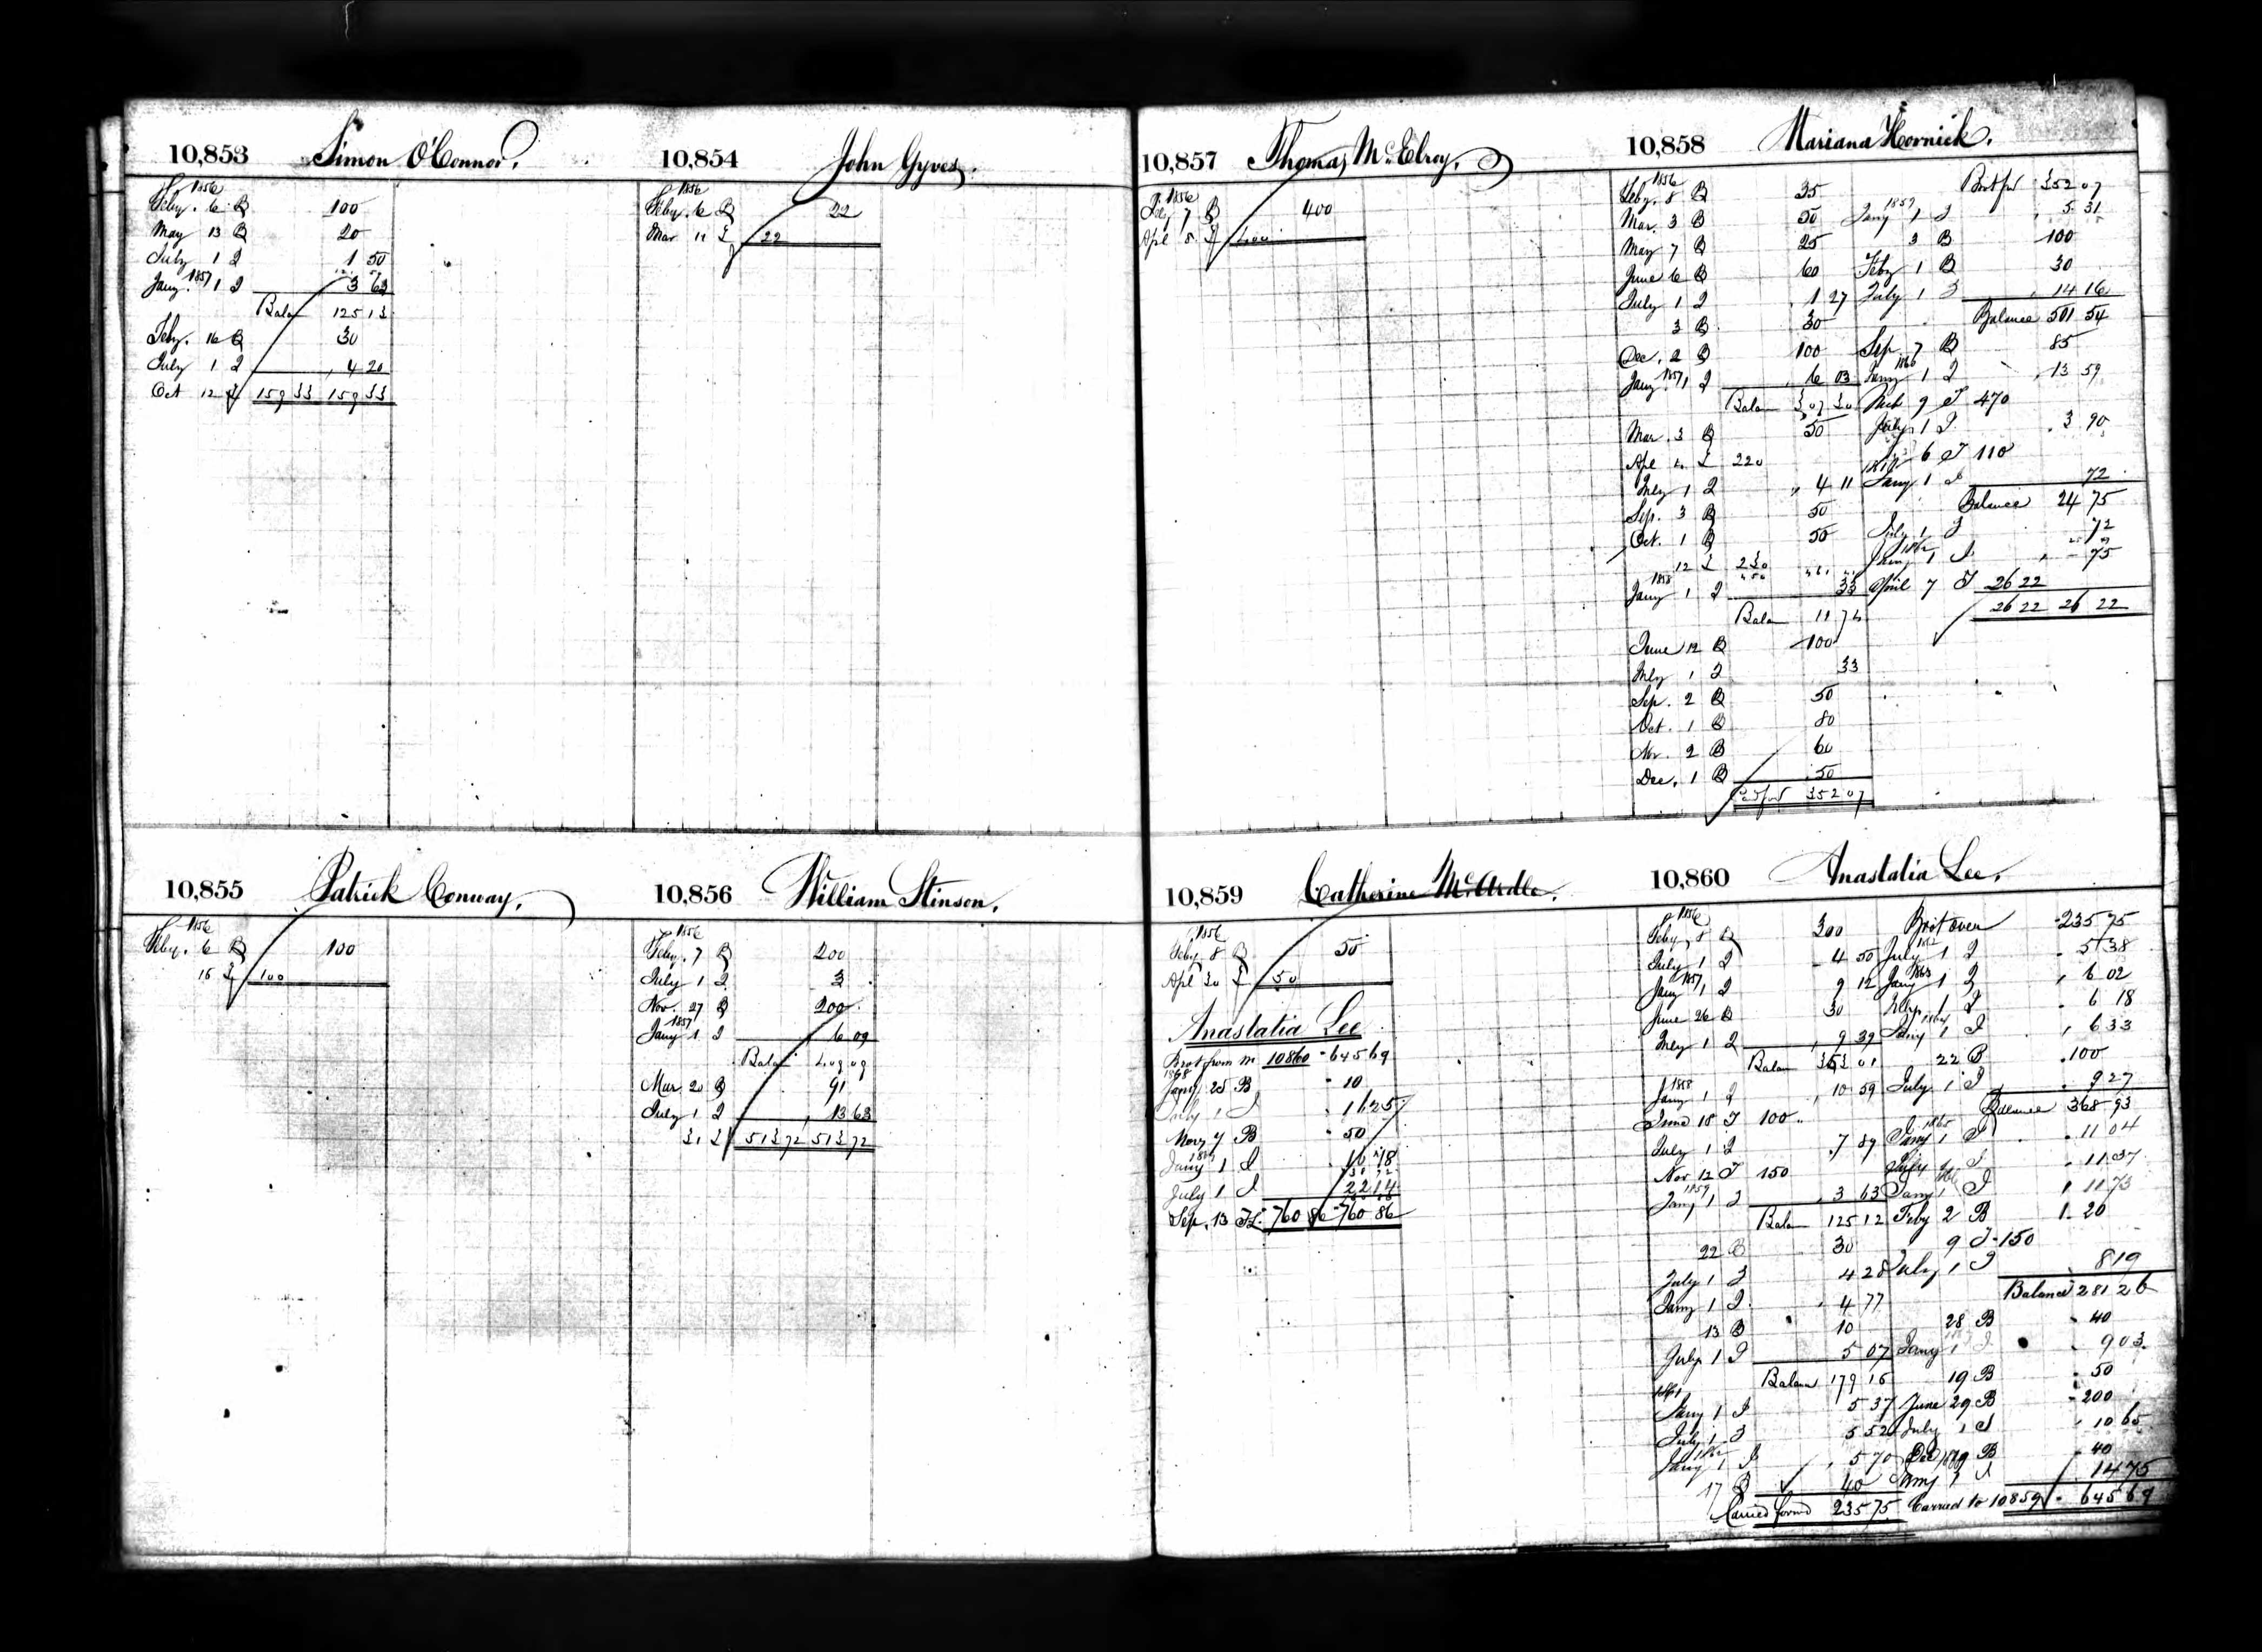 10,853 Simon O'Connor.
1856
Feby. 6 B 100
May 13 B 20
July 1 I 1 50
Jany. 1857 1 I 3 63
Balan 125 13
Feby. 16 B 30
July 1 I 4 20
Oct 12 £ 159 33 159 33
10,854 John Gyves.
1856
Feby. 6 B 22
Mar 11 £ 22
10,855 Patrick Conway.
1856
Feby. 6 B 100
15 £ 100
10,856 William Stinson.
1856
Feby. 7 B 200
July 1 I 3
Nov. 27 B 200
1857
Jany 1 I 6 09
Balan 409 09
Mar. 20 B 91
July 1 I 13 63
31 £ 513 72 513 72
10,857 Thomas McElroy.
1856
Feby 7 B 400
Apl 5 £ 400
10,858 Mariana Hornick.
1856
Feby. 8 B 35
Mar. 3 B 50
May 7 B 25
June 6 B 60
July 1 I 1 27
3 B 30
Dec. 2 B 100
Jany 1857 1 I 6 03
Balan 307 30
Mar. 3 B 50
Apl 4 £ 220
July 1 I 4 11
Sep. 3 B 50
Oct. 1 B 50
12 £ 230
1858
Jany 1 I 33
Balan 11 74
June 12 B 100
July 1 I 33
Sep. 2 B 50
Oct. 1 B 80
Nov. 2 B 60
Dec. 1 B 50
Card ford 352 07
Brot for 352 07
1859
Jany 1 I 5 31
3 B 100
Feby 1 B 30
July 1 I 14 16
Balance 501 54
Sep. 7 B 85
1860
Jany 1 I 13 59
Mch 9 T 470
July 1 I 3 90
6 T 110
Jany 1 I 72
Balance 24 75
July 1 I 72
1862
Jany 1 I 75
April 7 T 26 22
26 22 26 22
10,859 Catherine McArdle.
1856
Feby 8 B 50
Apl 30 £ 50
Anastatia Lee
Brot from No 10860 645 69
1868
Jany 28 B 10
July 1 I 16 25
Nov 7 B 50
Jany 1 I 16 78
July 1 I 22 14
Sep. 13 T£ 760 86 760 86
10,860 Anastatia Lee.
1856
Feby. 8 B 300
July 1 I 4 50
Jany 1857 1 I 9 12
June 26 B 30
July 1 I 9 39
Balan 353 01
1858
Jany 1 I 10 59
June 18 T 100
July 1 I 7 89
Nov 12 T 150
1859
Jany 1 I 3 63
Balan 125 12
22 B 30
July 1 I 4 28
Jany 1 I 4 77
13 B 10
July 1 I 5 07
Balan 179 16
1861
Jany 1 I 5 37
July 1 I 5 52
1862
Jany 1 I 5 70
17 B 40
Carried forwd 235 75
Brot over 235 75
1862
July 1 I 5 38
1863
Jany 1 I 6 02
July 1 I 6 18
1864
Jany 1 I 6 33
22 B 100
July 1 I 9 27
Balance 368 93
1865
Jany 1 I 11 04
July 1 I 11 37
1866
Jany 1 I 11 73
Feby 2 B 20
9 T 150
July 1 I 8 19
Balance 281 26
28 B 40
Jany 1 I 9 03
19 B 50
June 29 B 200
July 1 I 10 65
Dec 19 B 40
Jany 1 I 14 75
Carried to 10859 645 69